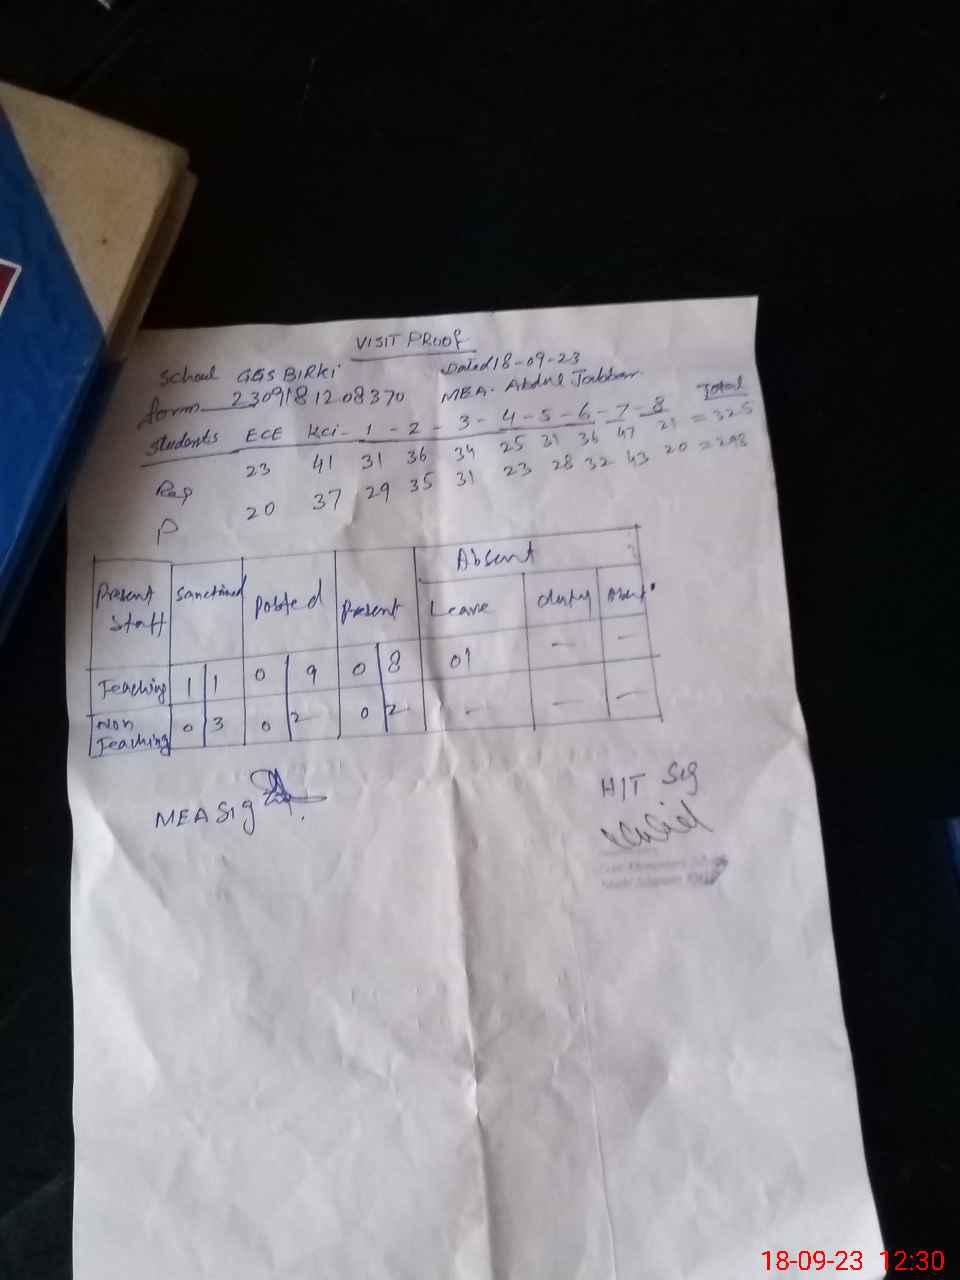 VISIT PROOF
School GGS BIRKi Dated 18-09-23
form 2309181208370 MEA. Abdul Jabbar
Students ECE Kci - 1 - 2 - 3 - 4 - 5 - 6 - 7 - 8 Total
Reg 23 41 31 36 34 25 31 36 47 21 = 325
P 20 37 29 35 31 23 28 32 43 20 = 298
Absent
Present Staff Sanctioned Posted Present Leave duty Absent
Teaching 1 1 0 9 0 8 01 — —
Non Teaching 0 3 0 2 0 2 - — —
MEA Sig H/T Sig
18-09-23 12:30